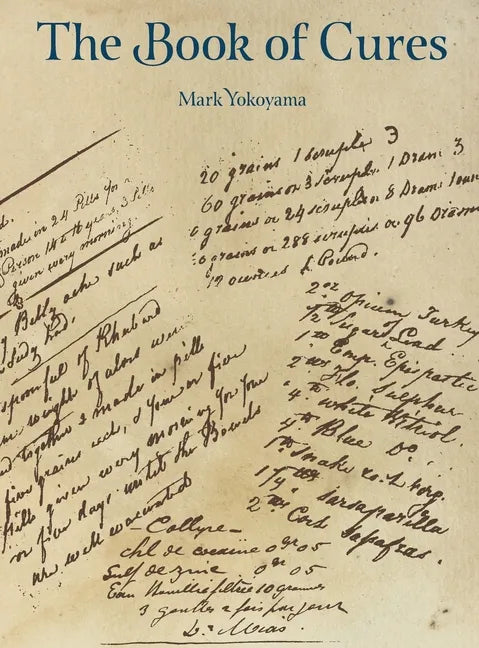 The Book of Cures
Mark Yokoyama
d.
made in 24 Pills for
Person 14 to 16 years, 3 Pills
given every morning
Belly ache such as
spoonful of Rhubarb
weight of aloes
together & made in pills
five grains each, & four or five
Pills given every morning for four
or five days until the Bowels
are well evacuated
20 grains 1 scruple 3
60 grains or 3 scruples. 1 Dram 3
grains or 24 scruples or 8 Drams 1 oun
grains or 288 scruples or 96 Drams
12 ounces 1 Pound.
2 oz Opium Turkey
Sugar of Lead
Emp. Epispastic
Flo. Sulphur
4 White Vitriol.
4 Blue Do
Snake root
1/4 Sarsaparilla
2 Sasafras.
- Collyre -
chl de cocaine 0 gr 05
Sulf de zinc 0 gr 05
Eau bouillie filtrée 10 grammes
3 gouttes 2 fois par jour
Dr.